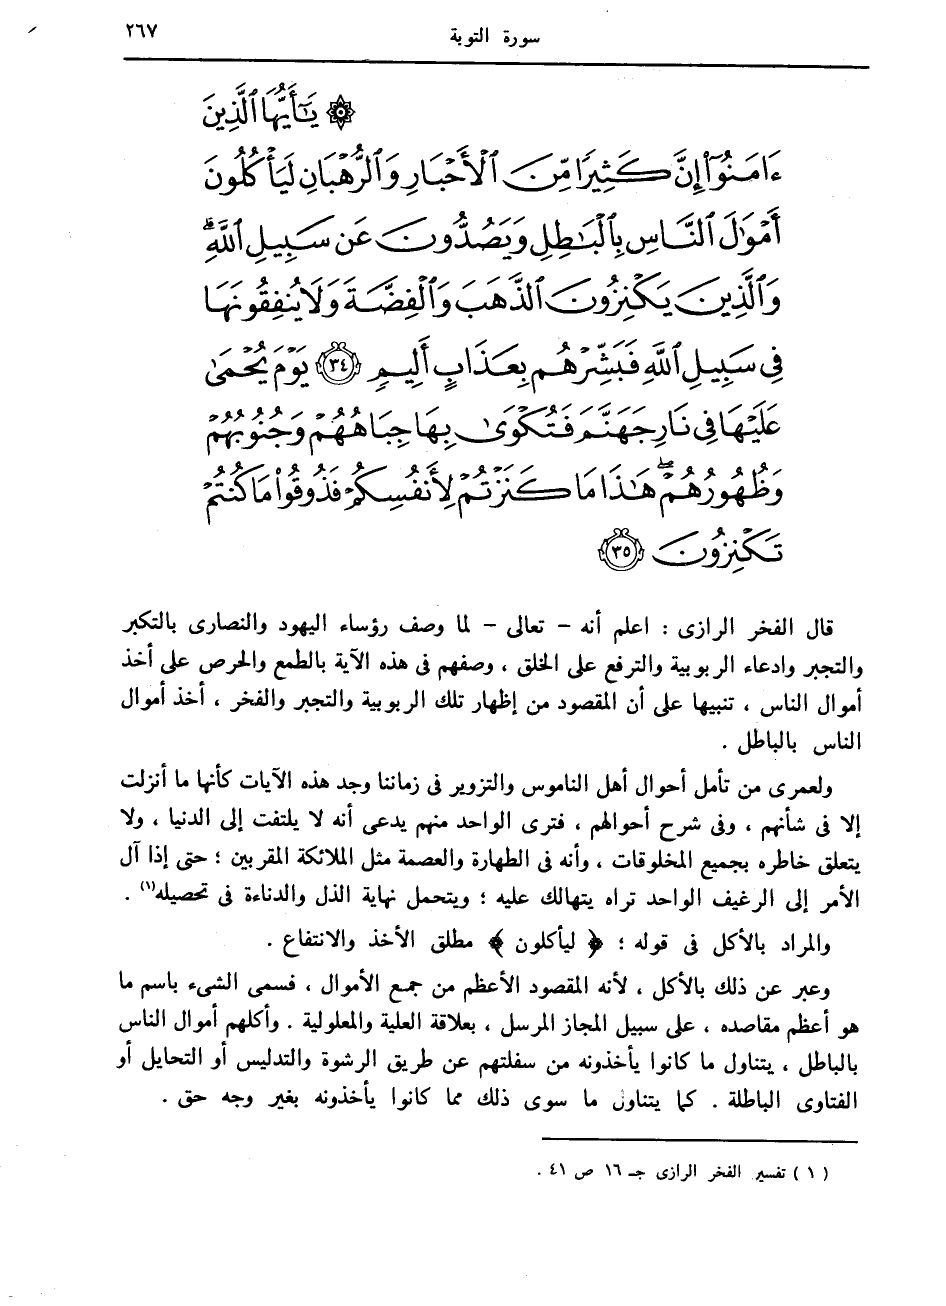 سورة التوبة ٢٦٧
۞ يَٰٓأَيُّهَا ٱلَّذِينَ
ءَامَنُوٓا۟ إِنَّ كَثِيرًا مِّنَ ٱلْأَحْبَارِ وَٱلرُّهْبَانِ لَيَأْكُلُونَ
أَمْوَٰلَ ٱلنَّاسِ بِٱلْبَٰطِلِ وَيَصُدُّونَ عَن سَبِيلِ ٱللَّهِ ۗ
وَٱلَّذِينَ يَكْنِزُونَ ٱلذَّهَبَ وَٱلْفِضَّةَ وَلَا يُنفِقُونَهَا
فِى سَبِيلِ ٱللَّهِ فَبَشِّرْهُم بِعَذَابٍ أَلِيمٍ ٣٤ يَوْمَ يُحْمَىٰ
عَلَيْهَا فِى نَارِ جَهَنَّمَ فَتُكْوَىٰ بِهَا جِبَاهُهُمْ وَجُنُوبُهُمْ
وَظُهُورُهُمْ ۖ هَٰذَا مَا كَنَزْتُمْ لِأَنفُسِكُمْ فَذُوقُوا۟ مَا كُنتُمْ
تَكْنِزُونَ ٣٥
قال الفخر الرازى : اعلم أنه – تعالى – لما وصف رؤساء اليهود والنصارى بالتكبر
والتجبر وادعاء الربوبية والترفع على الخلق ، وصفهم فى هذه الآية بالطمع والحرص على أخذ
أموال الناس ، تنبيها على أن المقصود من إظهار تلك الربوبية والتجبر والفخر ، أخذ أموال
الناس بالباطل .
ولعمرى من تأمل أحوال أهل الناموس والتزوير فى زماننا وجد هذه الآيات كأنها ما أنزلت
إلا فى شأنهم ، وفى شرح أحوالهم ، فترى الواحد منهم يدعى أنه لا يلتفت إلى الدنيا ، ولا
يتعلق خاطره بجميع المخلوقات ، وأنه فى الطهارة والعصمة مثل الملائكة المقربين ؛ حتى إذا آل
الأمر إلى الرغيف الواحد تراه يتهالك عليه ؛ ويتحمل نهاية الذل والدناءة فى تحصيله(١) .
والمراد بالأكل فى قوله ؛ ﴿ ليأكلون ﴾ مطلق الأخذ والانتفاع .
وعبر عن ذلك بالأكل ، لأنه المقصود الأعظم من جمع الأموال ، فسمى الشىء باسم ما
هو أعظم مقاصده ، على سبيل المجاز المرسل ، بعلاقة العلية والمعلولية . وأكلهم أموال الناس
بالباطل ، يتناول ما كانوا يأخذونه من سفلتهم عن طريق الرشوة والتدليس أو التحايل أو
الفتاوى الباطلة . كما يتناول ما سوى ذلك مما كانوا يأخذونه بغير وجه حق .
( ١ ) تفسير الفخر الرازى جـ ١٦ ص ٤١ .